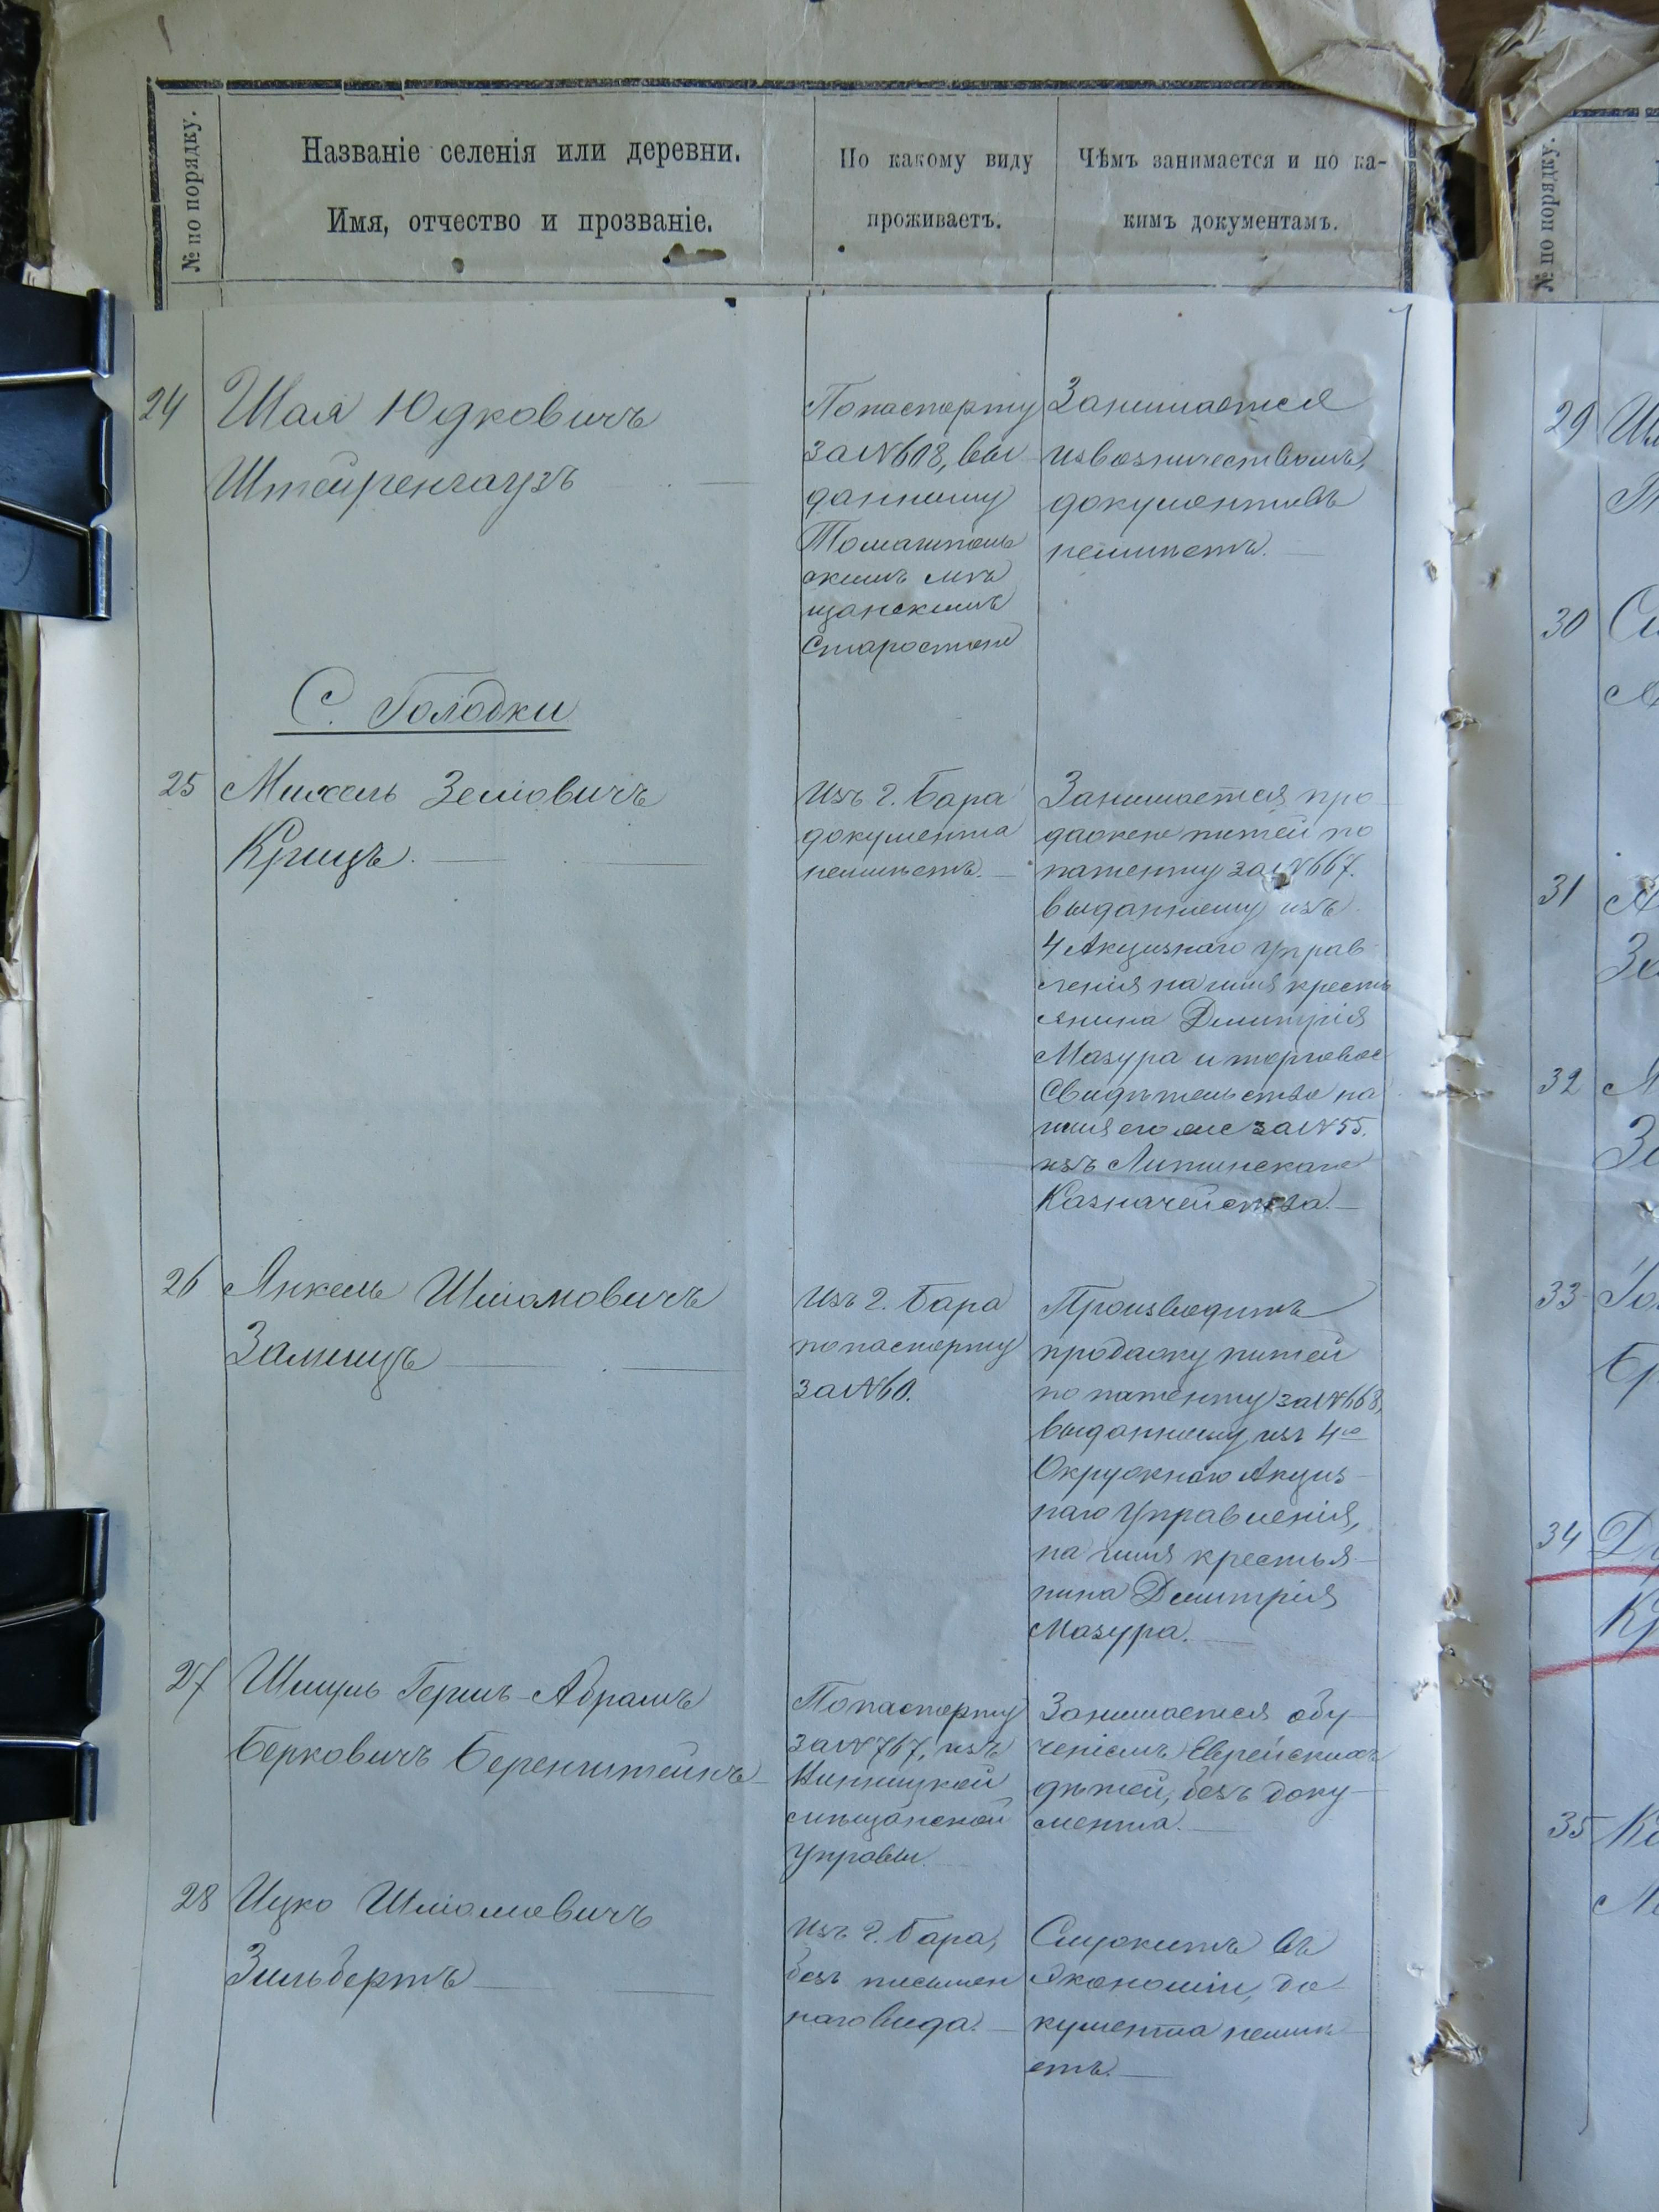 № по порядку.
Названіе селенія или деревни.
Имя, отчество и прозваніе.
По какому виду
проживаетъ.
Чѣмъ занимается и по ка-
кимъ документамъ.
№ по порядку.
24
Шая Юдковичъ
Штейренгаузъ
По паспорту
за № 608, вы
данному
Томашполь
скимъ мѣ
щанскимъ
Старостою
Занимается
извозничествомъ,
документовъ
неимѣетъ.
С. Голодки
25
Михель Зельовичъ
Крицъ.
Изъ г. Бара
документа
неимѣетъ.
Занимается про
дажею питей по
патенту за № 667.
выданному изъ
4 Акцизнаго Управ
ленія на имя кресть
янина Димитрія
Мазура и торговое
Свидѣтельство на
имя его же за № 55.
изъ Литинскаго
Казначейства.
26
Янкель Шліомовичъ
Залницъ
Изъ г. Бара
по паспорту
за № 60.
Производитъ
продажу питей
по патенту за № 668,
выданному изъ 4го
Окружнаго Акциз-
наго Управленія,
на имя крестья-
нина Димитрія
Мазура.
27
Шмуль Гершъ-Абрамъ
Берковичъ Беренштейнъ
По паспорту
за № 767, изъ
Винницкой
мѣщанской
Управы.
Занимается обу-
ченіемъ Еврейскихъ
дѣтей, безъ доку-
мента.
28
Ицко Шліомовичъ
Зильбертъ
Изъ г. Бара,
безъ письмен
наго вида.
Служитъ въ
Экономіи, до-
кумента неимѣ-
етъ.
29
30
31
32
33
34
35